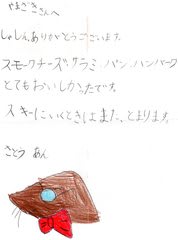 やまざきさんへ
しゃしん、ありがとうございます。
スモークチーズ、サラミ、パン、ハンバーグ
とてもおいしかったです。
スキーにいくときはまた、とまります。
さとう あん